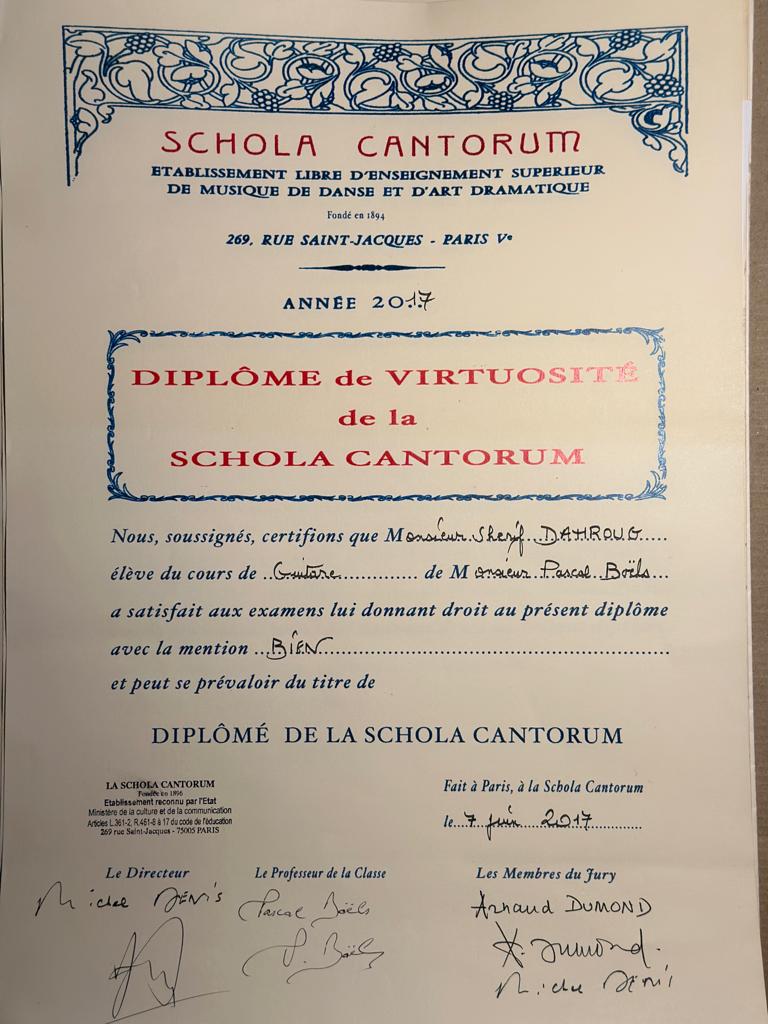 SCHOLA CANTORUM
ETABLISSEMENT LIBRE D'ENSEIGNEMENT SUPERIEUR
DE MUSIQUE DE DANSE ET D'ART DRAMATIQUE
Fondé en 1894
269, RUE SAINT-JACQUES - PARIS Vᵉ
ANNÉE 2017
DIPLÔME de VIRTUOSITÉ
de la
SCHOLA CANTORUM
Nous, soussignés, certifions que Monsieur Sherif DAHROUG
élève du cours de Guitare de Monsieur Pascal Boëls
a satisfait aux examens lui donnant droit au présent diplôme
avec la mention BIEN
et peut se prévaloir du titre de
DIPLÔMÉ DE LA SCHOLA CANTORUM
LA SCHOLA CANTORUM
Fondée en 1896
Etablissement reconnu par l'Etat
Ministère de la culture et de la communication
Articles L.361-2, R.461-8 à 17 du code de l'éducation
269 rue Saint-Jacques - 75005 PARIS
Fait à Paris, à la Schola Cantorum
le 7 juin 2017
Le Directeur
Le Professeur de la Classe
Les Membres du Jury
Michel DENIS
Pascal Boëls
Arnaud DUMOND
P. Boëls
Dumond
Michel DENIS